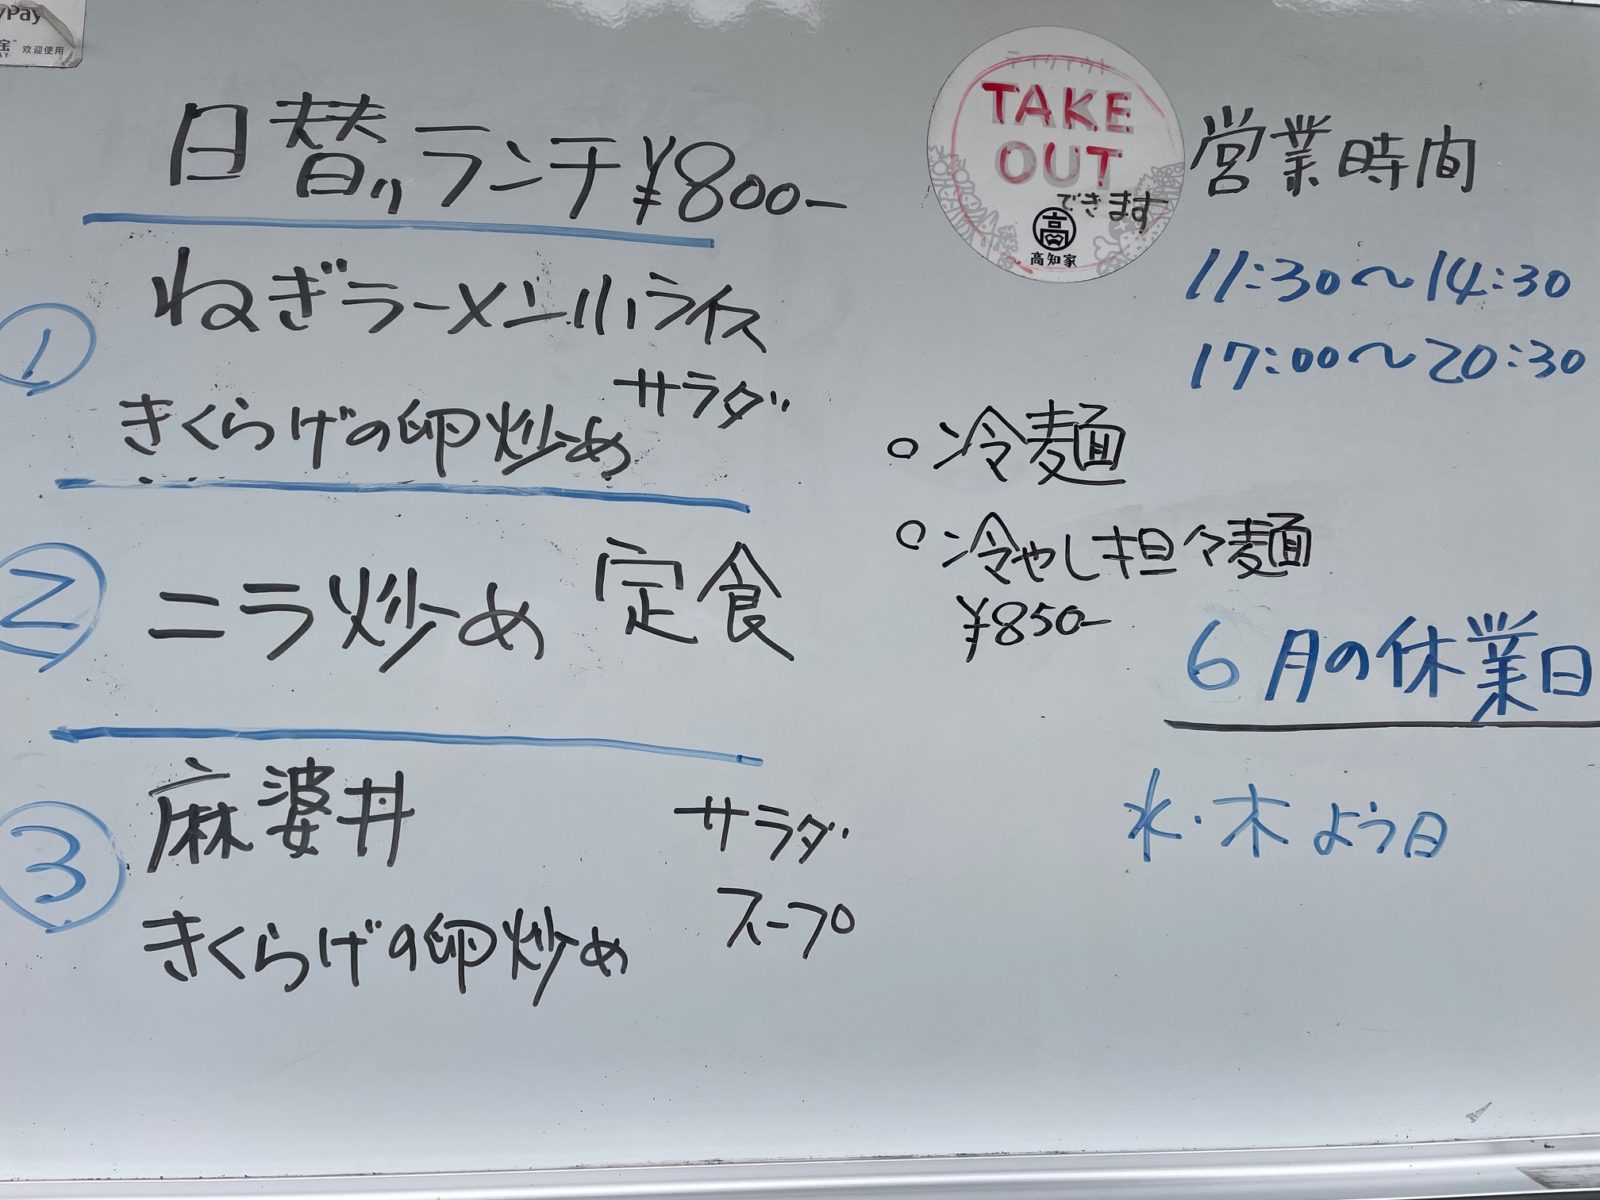 Pay
欢迎使用
日替りランチ¥800-
① ねぎラーメン 小ライス
サラダ
きくらげの卵炒め
② ニラ炒め 定食
③ 麻婆丼
サラダ
スープ
きくらげの卵炒め
テイクアウト
TAKE
OUT
できます
高
高知家
営業時間
11:30〜14:30
17:00〜20:30
○冷麺
○冷やし担々麺
¥850-
6月の休業日
水・木よう日